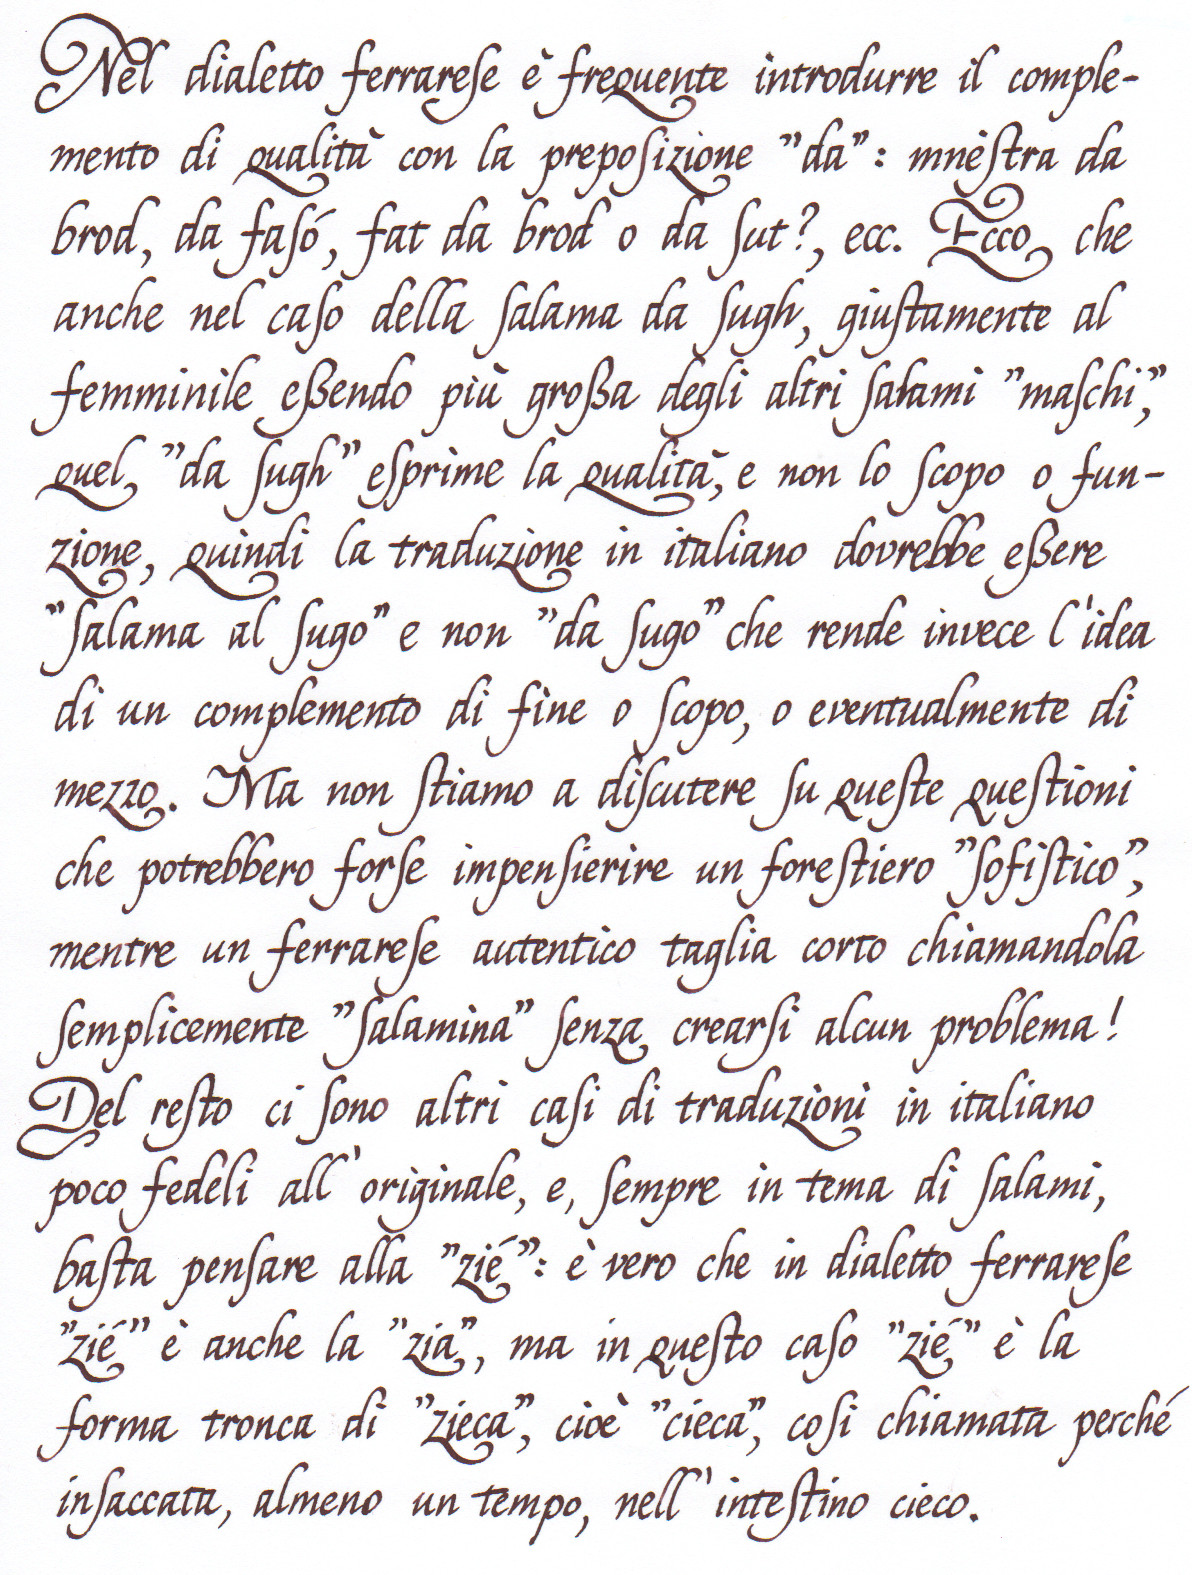 Nel dialetto ferrarese è frequente introdurre il comple-
mento di qualità con la preposizione "da": mnèstra da
brod, da fasó, fat da brod o da sut?, ecc. Ecco che
anche nel caso della salama da sugh, giustamente al
femminile eßendo più großa degli altri salami "maschi",
quel "da sugh" esprime la qualità, e non lo scopo o fun-
zione, quindi la traduzione in italiano dovrebbe eßere
"salama al sugo" e non "da sugo" che rende invece l'idea
di un complemento di fine o scopo, o eventualmente di
mezzo. Ma non stiamo a discutere su queste questioni
che potrebbero forse impensierire un forestiero "sofistico",
mentre un ferrarese autentico taglia corto chiamandola
semplicemente "salamina" senza crearsi alcun problema!
Del resto ci sono altri casi di traduzioni in italiano
poco fedeli all'originale, e, sempre in tema di salami,
basta pensare alla "zié": è vero che in dialetto ferrarese
"zié" è anche la "zia", ma in questo caso "zié" è la
forma tronca di "zieca", cioè "cieca", cosi chiamata perché
insaccata, almeno un tempo, nell'intestino cieco.